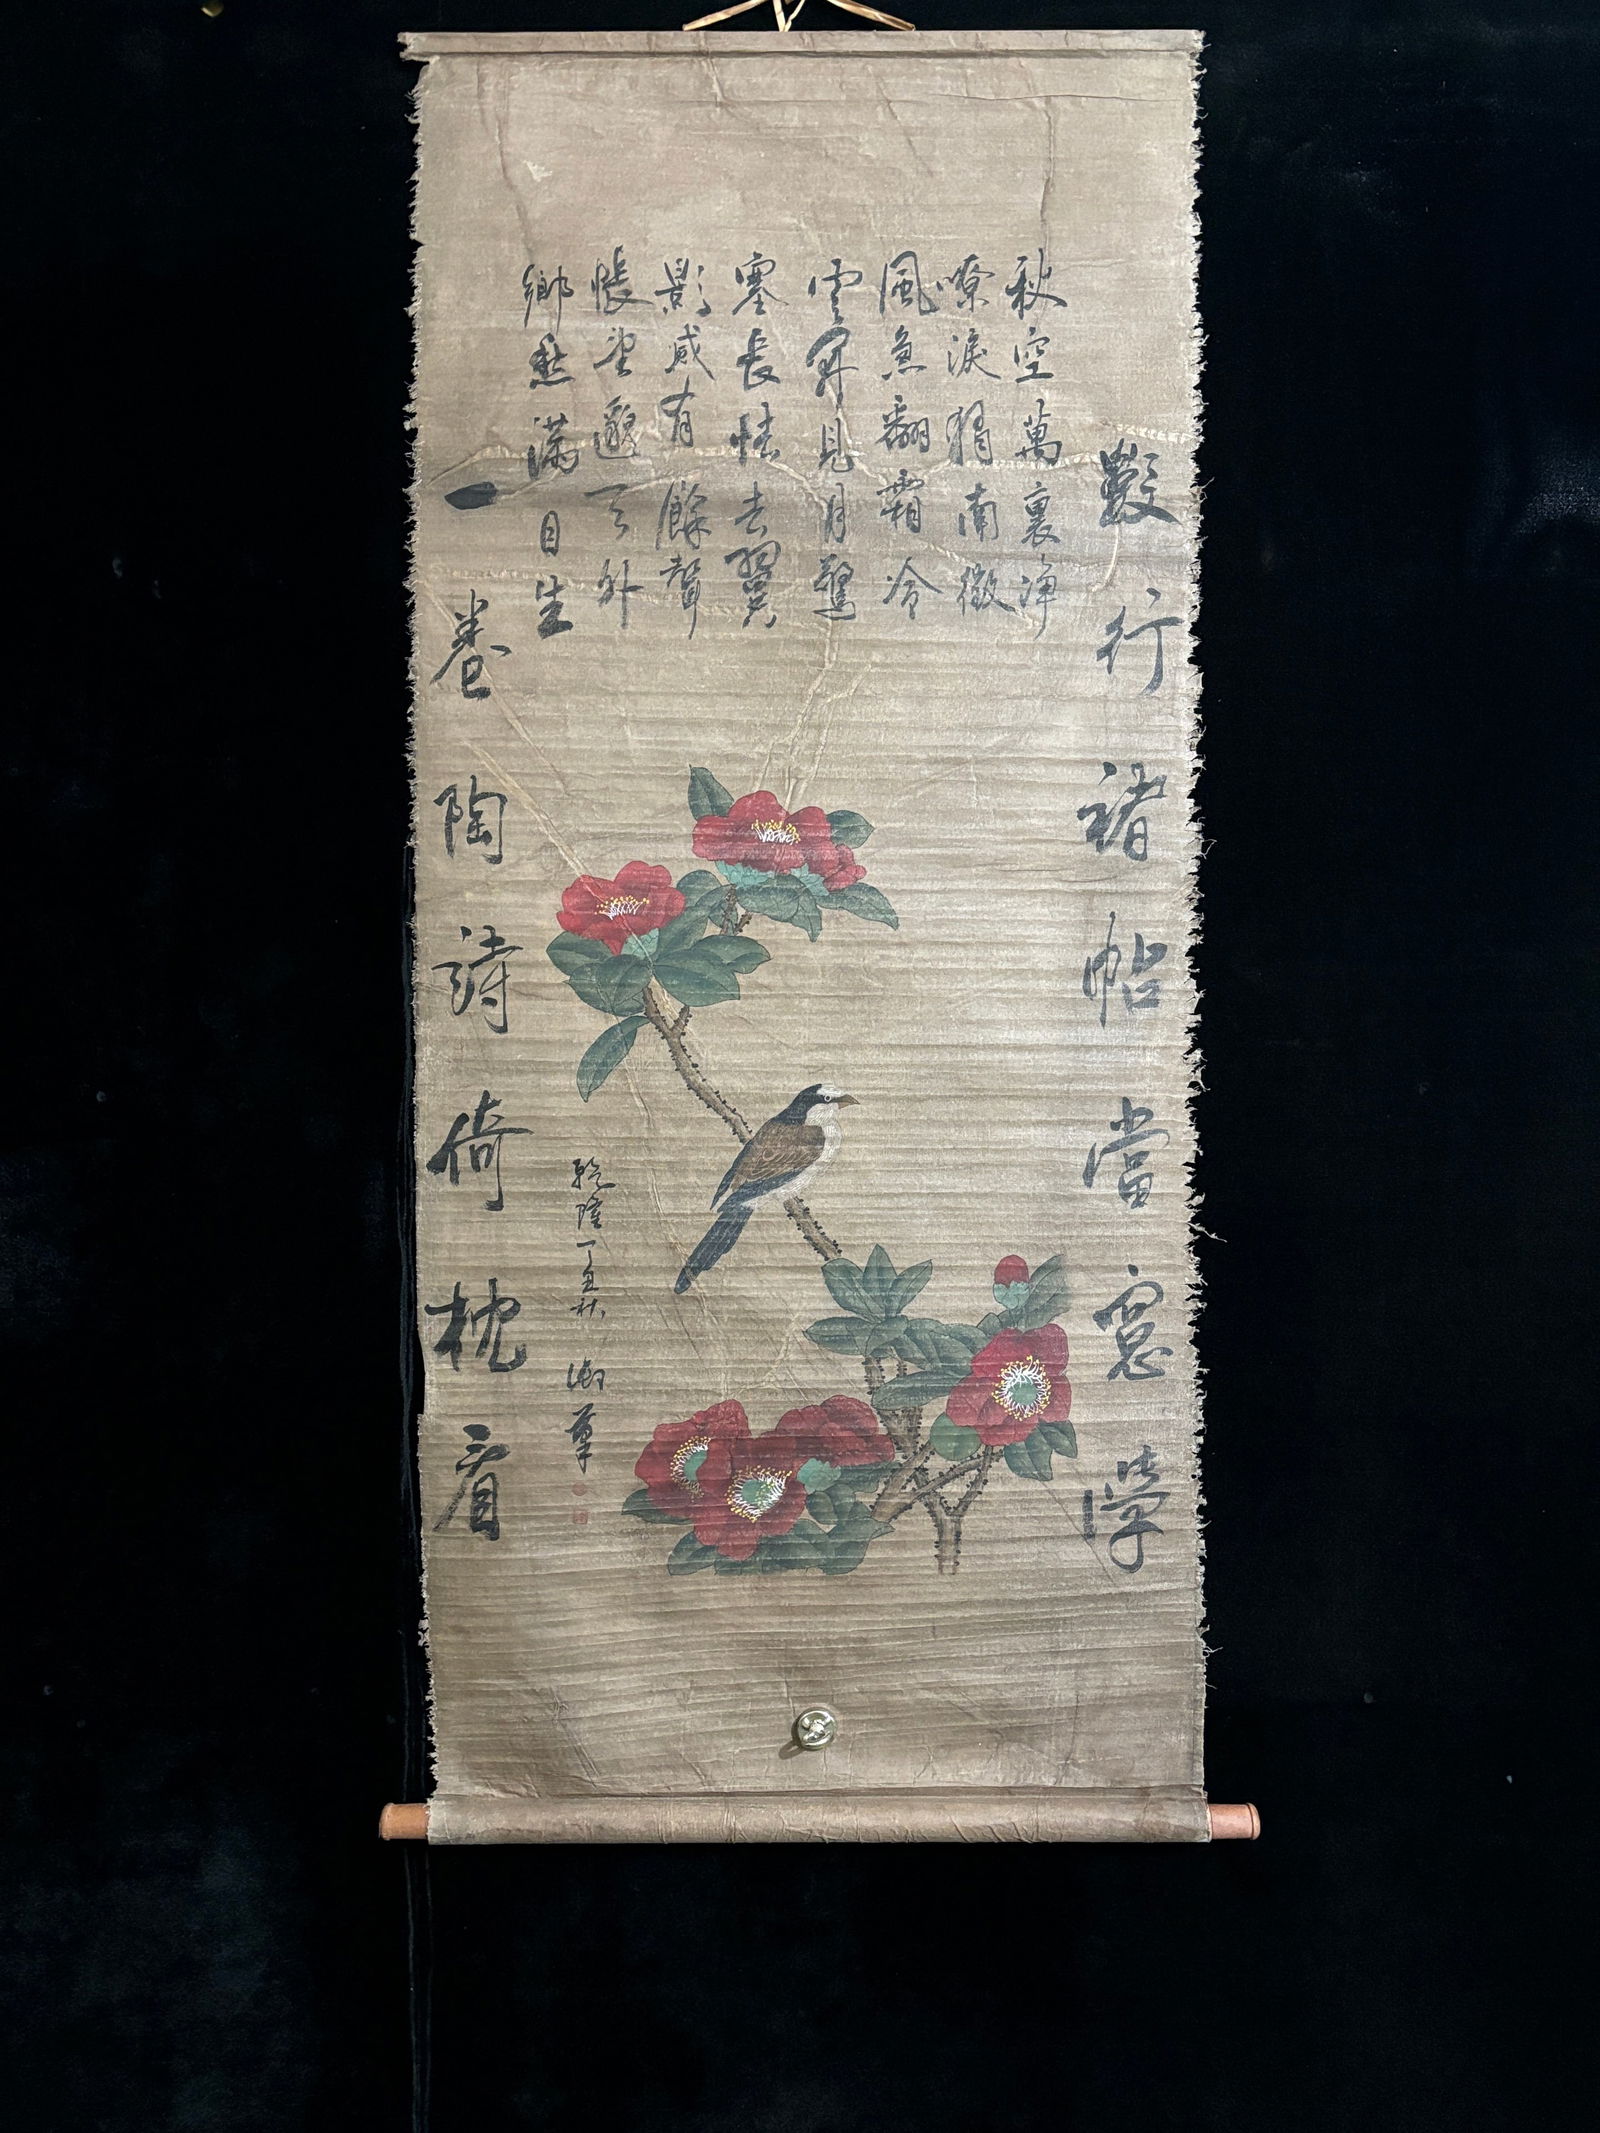 數行褚帖當窗學
秋空萬裏淨
嘹淚獨南徵
風急翻霜冷
雲開見月驚
塞長怯去翼
影滅有餘聲
悵望邈天外
鄉愁滿目生
一卷陶詩倚枕看
乾隆丁丑秋 御筆